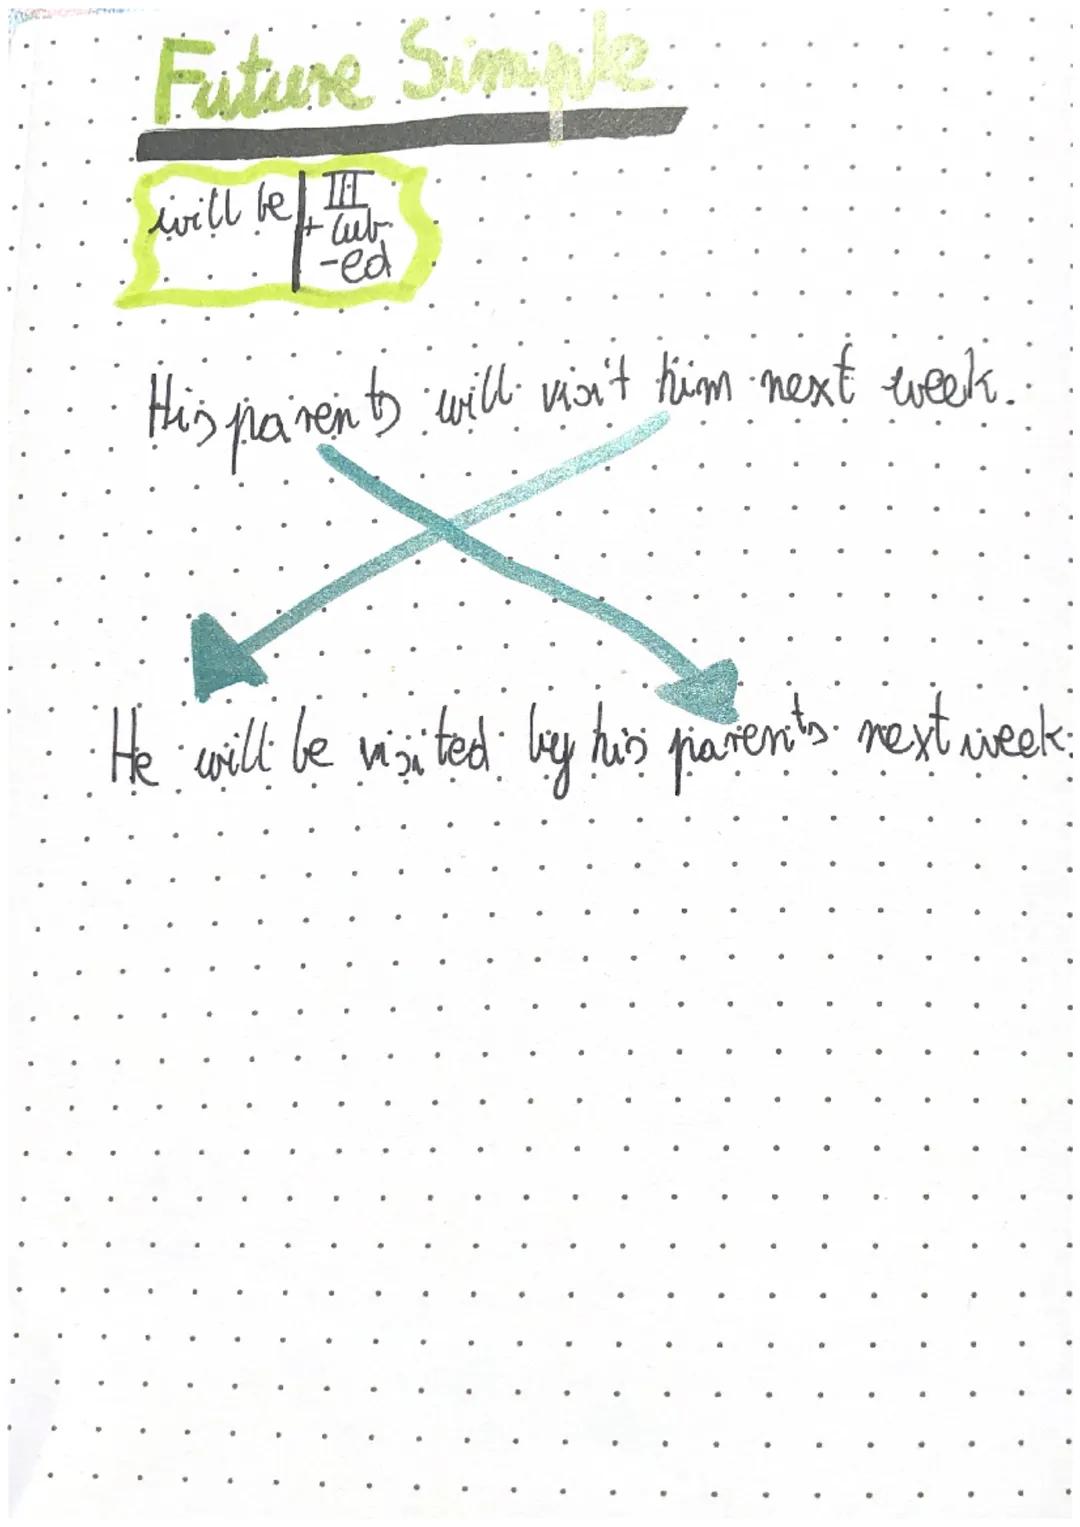 Future Simple
will be | III
+ lub
-ed
His parents will visit him next week.
He will be visited by his parents next week.